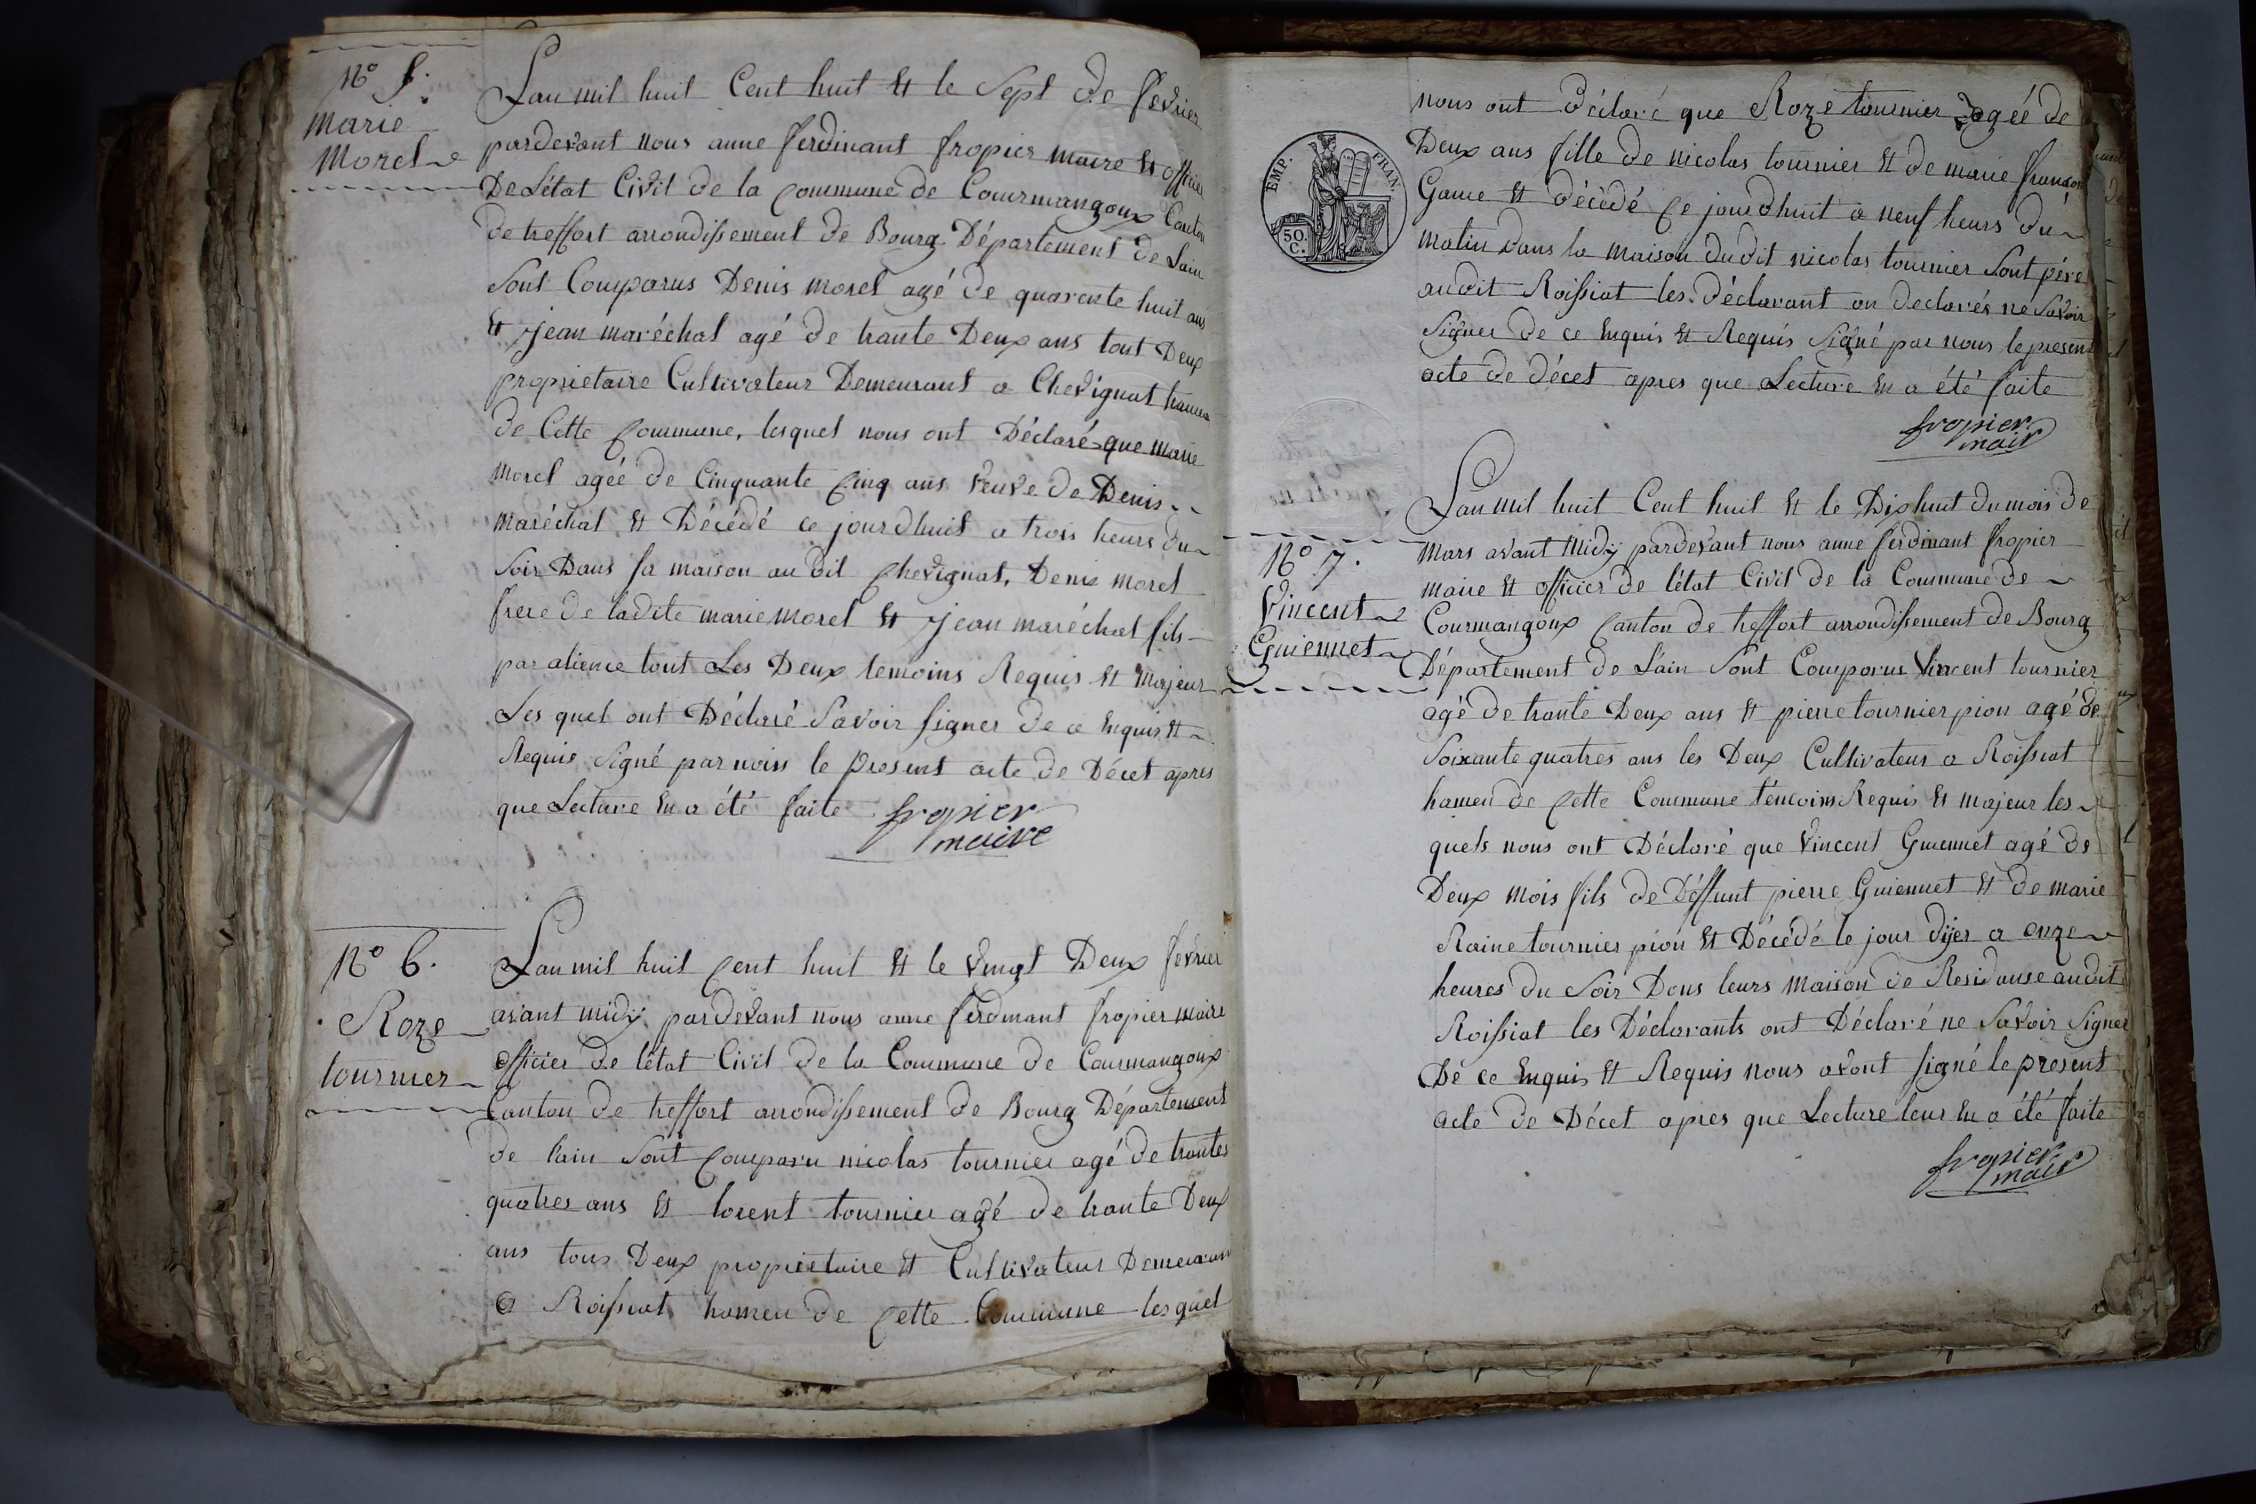 N° 5.
Marie
Morel
Lan mil huit Cent huit et le Sept de fevrier
pardevant nous anne ferdinant fropier maire et officier
De Létat Civil de la Commune de Courmangoux Canton
de treffort arrondissement de Bourg Département de Lain
Sont Comparus Denis morel agé de quarente huit ans
et jean maréchal agé de trante Deux ans tout Deux
proprietaire Cultivateur Demeurant a Chevignat hameau
de Cette Commune, lesquel nous ont Déclaré que marie
morel agée de Cinquante Cinq ans veuve de Denis
maréchal et Décédé ce jourdhuit a trois heurs du
Soir Dans sa maison au dit Chevignat, Denis morel
frere de ladite marie morel et jean maréchal fils
par alience tout Les Deux temoins Requis et Majeur
Les quel ont Déclaré Savoir signer de ce Enquis et
Requis Signé par nous le present acte de Décet apres
que Lecture En a été faite
fropier
maire
N° 6.
Roze
tournier
Lan mil huit cent huit et le vingt Deux fevrier
avant midy pardevant nous anne ferdinant fropier maire
officier de létat Civil de la Commune de Courmangoux
Canton de treffort arrondissement de Bourg Département
de lain Sont Comparu nicolas tournier agé de trantes
quatres ans et lorent tournier agé de trante Deux
ans tous Deux proprietaire et Cultivateur Demeurant
a Roissiat hameu de Cette Commune lesquel
EMP. FRAN.
50.
C.
nous ont déclaré que Roze tournier agéé de
Deux ans fille de nicolas tournier et de marie
Game et décédé ce jourdhuit a neuf heurs du
matin dans la maison dudit nicolas tournier Sont pére
audit Roissiat les déclarant on declarés ne Savoir
Signer de ce Enquis et Requis Signé par nous le present
acte de décet apres que Lecture En a été faite
fropier
mair
N° 7.
Vincent
Guiennet
Lan mil huit Cent huit et le Dixhuit du mois de
Mars avant Midy pardevant nous anne ferdinant fropier
maire et officier de létat Civil de la Commune de
Courmangoux Canton de treffort arrondissement de Bourg
Département de Láin Sont Comparus Vincent tournier
agé de trante Deux ans et pierre tournier pion agé de
Soixante quatres ans les Deux Cultivateur a Roissiat
hameu de Cette Commune témoins Requis et majeur les
quels nous ont Déclaré que Vincent Guiennet agé de
Deux Mois fils de Déffunt pierre Guiennet et de marie
Raine tournier pion et Décédé le jour dijer a onze
heures du Soir Dans leurs maison de Residanse audit
Roissiat les Déclarants ont Déclaré ne Savoir Signer
De ce Enquis et Requis nous avont signé le present
acte de Décet apres que Lecture leur En a été faite
fropier
mair